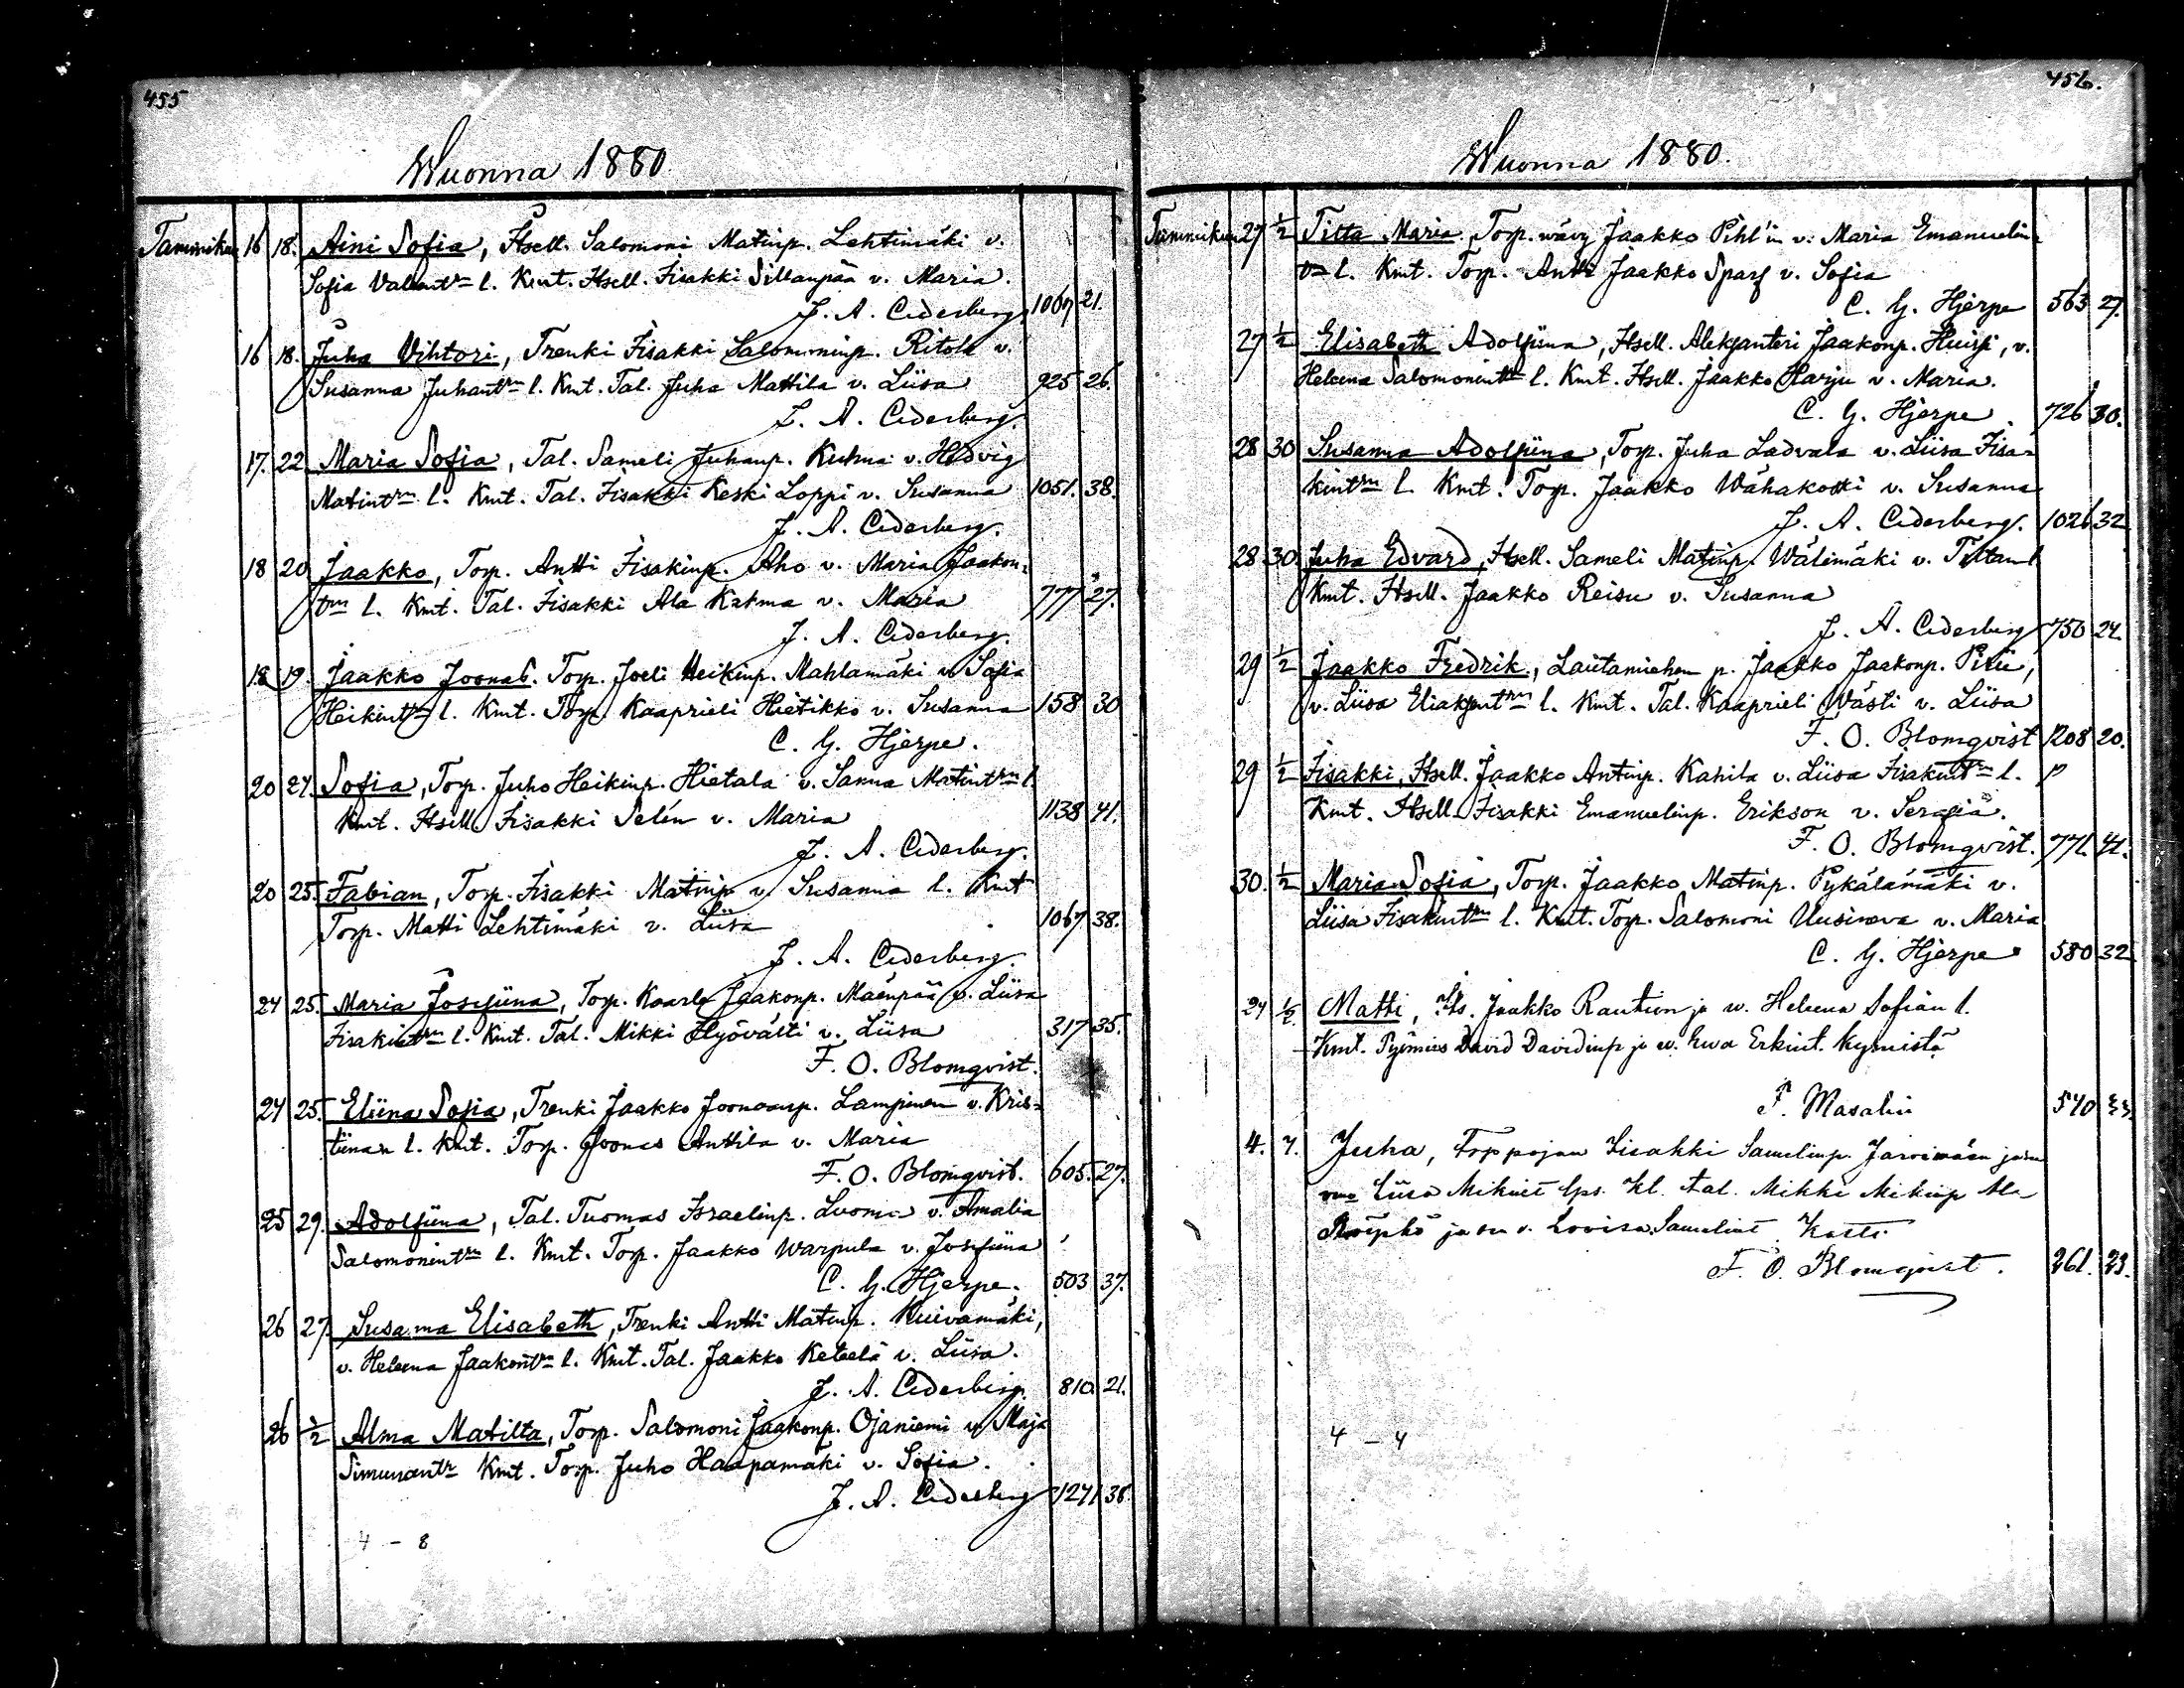 455
Wuonna 1880
Tammikuu 16 18. Aini Sofia, Itsell. Salomoni Matinp. Lehtimäki v.
Sofia Valent:rn l. Kmt. Itsell. Iisakki Sillanpää v. Maria.
J. A. Cederberg. 1067 21.
16 18. Juha Vihtori, Trenki Iisakki Salomoninp. Ritola v.
Susanna Juhant:rn l. Kmt. Tal. Juha Mattila v. Liisa 925 26.
J. A. Cederberg.
17. 22 Maria Sofia, Tal. Sameli Juhanp. Kuhna v. Hedvig
Matint:rn l. Kmt. Tal. Iisakki Keski Loppi v. Susanna 1051. 38.
J. A. Cederberg.
18 20 Jaakko, Torp. Antti Iisakinp. Aho v. Maria Jaakon-
t:rn l. Kmt. Tal. Iisakki Ala Katma v. Maria 777 27.
J. A. Cederberg.
18 19. Jaakko Joonas. Torp. Joeli Heikinp. Mahlamäki v. Sofia
Heikint:rn l. Kmt. Torp. Kaaprieli Hietikko v. Susanna 158 30
C. G. Hjerpe.
20 24 Sofia, Torp. Juho Heikinp. Hietala v. Sanna Matint:rn l.
Kmt. Itsell. Iisakki Selén v. Maria 1138 41.
J. A. Cederberg.
20 25. Fabian, Torp. Iisakki Matinp v. Susanna l. Kmt
Torp. Matti Lehtimäki v. Liisa 1067 38.
J. A. Cederberg.
24 25. Maria Josefiina, Torp. Kaarlo Jaakonp. Mäenpää v. Liisa
Iisakint:rn l. Kmt. Tal. Mikki Hyövälti v. Liisa 317 35.
F. O. Blomqvist.
24 25. Eliina Sofia, Trenki Jaakko Joonaanp. Lampinen v. Kris-
tiinan l. Kmt. Torp. Joonas Anttila v. Maria
F. O. Blomqvist. 605. 27.
25 29. Adolfiina, Tal. Tuomas Israelinp. Luoma v. Amalia
Salomonint:rn l. Kmt. Torp. Jaakko Warpula v. Josefiina
C. G. Hjerpe. 503 37.
26 27 Susanna Elisabeth, Trenki Antti Matinp. Kuivamäki,
v. Helena Jaakont:rn l. Kmt. Tal. Jaakko Ketelä v. Liisa.
J. A. Cederberg. 810 21.
26 1/2 Alma Matilta, Torp. Salomoni Jaakonp. Ojaniemi v. Maja
Simunant:r Kmt. Torp. Juho Haapamäki v. Sofia.
J. A. Cederberg 1241 38.
4 - 8
456.
Wuonna 1880.
Tammikuu 27 1/2 Titta Maria Torp. wävy Jaakko Pihl'in v. Maria Emanuelin
t:rn l. Kmt. Torp. Antti Jaakko Sparf v. Sofia
C. G. Hjerpe 563 27.
27 1/2 Elisabeth Adolfiina, Itsell. Aleksanteri Jaakonp. Huisi, v.
Helena Salomonint:rn l. Kmt. Itsell. Jaakko Harju v. Maria.
C. G. Hjerpe. 726 30.
28 30 Susanna Adolfiina, Torp. Juha Ladvala v. Liisa Iisa-
kint:rn l. Kmt. Torp. Jaakko Wähäkoski v. Susanna
J. A. Cederberg. 1026 32
28 30. Juha Edvard, Itsell. Sameli Matinp. Wälimäki v. Tiltan l
Kmt. Itsell. Jaakko Reisu v. Susanna
J. A. Cederberg 750 24.
29 1/2 Jaakko Fredrik, Lautamiehen p. Jaakko Jaakonp. Piru,
v. Liisa Eliaksent:rn l. Kmt. Tal. Kaaprieli Wästi v. Liisa
F. O. Blomqvist 1208 20.
29 1/2 Iisakki, Itsell. Jaakko Antinp. Kahila v. Liisa Iisakint:rn l.
Kmt. Itsell. Iisakki Emanuelinp. Erikson v. Serafia.
F. O. Blomqvist. 771. 41.
30. 1/2 Maria Sofia, Torp. Jaakko Matinp. Pykälämäki v.
Liisa Iisakint:rn l. Kmt. Torp. Salomoni Uusineva v. Maria
C. G. Hjerpe 580 32
24 1/2. Matti, Its. Jaakko Raution ja w. Helena Sofian l.
Kmt. David Davidinp ja w. Ewa Erkint. Kyrnistä
F. Masalin 540 33.
4. 7. Juha, Torppajan Iisakki Samelinp. Jarvimäen ja
Liisa Mikint lps. Kl. tal. Mikki Mikinp Ala
ja sen v. Lovisa Samelint
F. O. Blomqvist. 261. 23.
4 - 4